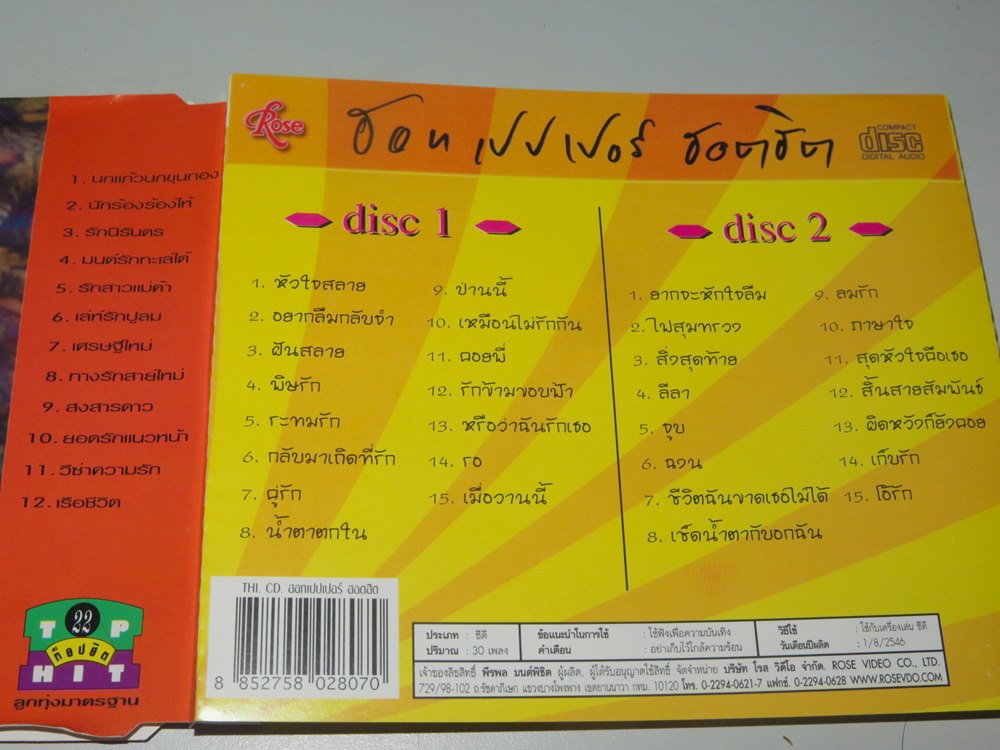 1. นกแก้วนกขุนทอง
2. นักร้องร้องไห้
3. รักนิรันดร
4. มนต์รักทะเลใต้
5. รักสาวแม่ค้า
6. เล่ห์รักปูลม
7. เศรษฐีใหม่
8. ทางรักสายใหม่
9. สงสารดาว
10. ยอดรักแนวหน้า
11. วีซ่าความรัก
12. เรือชีวิต
TOP
22
ท็อปฮิต
HIT
ลูกทุ่งมาตรฐาน
Rose
ฮอท เปปเปอร์ ฮอตฮิต
COMPACT
disc
DIGITAL AUDIO
disc 1
1. หัวใจสลาย
2. อยากลืมกลับจำ
3. ฝันสลาย
4. พิษรัก
5. ระทมรัก
6. กลับมาเถิดที่รัก
7. คู่รัก
8. น้ำตาตกใน
9. ป่านนี้
10. เหมือนไม่รักกัน
11. คอยพี่
12. รักข้ามขอบฟ้า
13. หรือว่าฉันรักเธอ
14. รอ
15. เมื่อวานนี้
disc 2
1. ยากจะหักใจลืม
2. ไฟสุมทรวง
3. สิ่งสุดท้าย
4. ลีลา
5. จูบ
6. ฉงน
7. ชีวิตฉันขาดเธอไม่ได้
8. เช็ดน้ำตากับอกฉัน
9. ลมรัก
10. ภาษาใจ
11. สุดหัวใจคือเธอ
12. สิ้นสายสัมพันธ์
13. ผิดหวังก็ยังคอย
14. เก็บรัก
15. โอ้รัก
THI. CD. ฮอทเปปเปอร์ ฮอตฮิต
8 852758 028070
ประเภท : ซีดี
ปริมาณ : 30 เพลง
ข้อแนะนำในการใช้ : ใช้ฟังเพื่อความบันเทิง
คำเตือน : อย่าเก็บไว้ใกล้ความร้อน
วิธีใช้ : ใช้กับเครื่องเล่น ซีดี
วันเดือนปีผลิต : 1/8/2546
เจ้าของลิขสิทธิ์ พีรพล มนต์พิชิต ผู้ผลิต, ผู้ได้รับอนุญาตใช้สิทธิ์ จัดจำหน่าย บริษัท โรส วิดีโอ จำกัด. ROSE VIDEO CO., LTD.
729/98-102 ถ.รัชดาภิเษก แขวงบางโพงพาง เขตยานนาวา กทม. 10120 โทร. 0-2294-0621-7 แฟกซ์. 0-2294-0628 WWW.ROSEVDO.COM